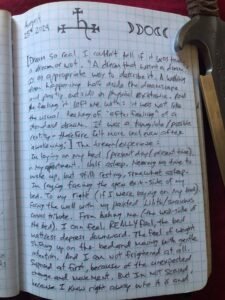 August
25th 2024
[Dream so real I couldn't tell if it was truly
a dream or not. "A dream that wasn't a dream"
is an appropriate way to describe it. A waking
dream happening both inside the dreamscape
and partly outside in physical existence. And
the feeling it left me with: it was not like
the usual feeling of "after feelings" of a
standard dream. It was a tangible / possible
reality - therefore felt more real even after
awakening.] The dream/experience:
I'm laying on my bed (present day/present time)
in my apartment. Half asleep. Nearing my time to
wake up, but still resting, somewhat asleep.
I'm laying facing the open exit-side of my
bed. To my right (if I were laying on my back)
facing the wall with my painted Lilith/
canvas tribute. From behind me (the wall-side of
the bed), I can feel, REALLY feel, the bed
mattress depress downward. The feel of weight
on the bed and moving with gentle
intention. And I am not frightened at all.
at first, because of the unexpected
change and movement. And I'm NOT SCARED
because I knew right away who it is and